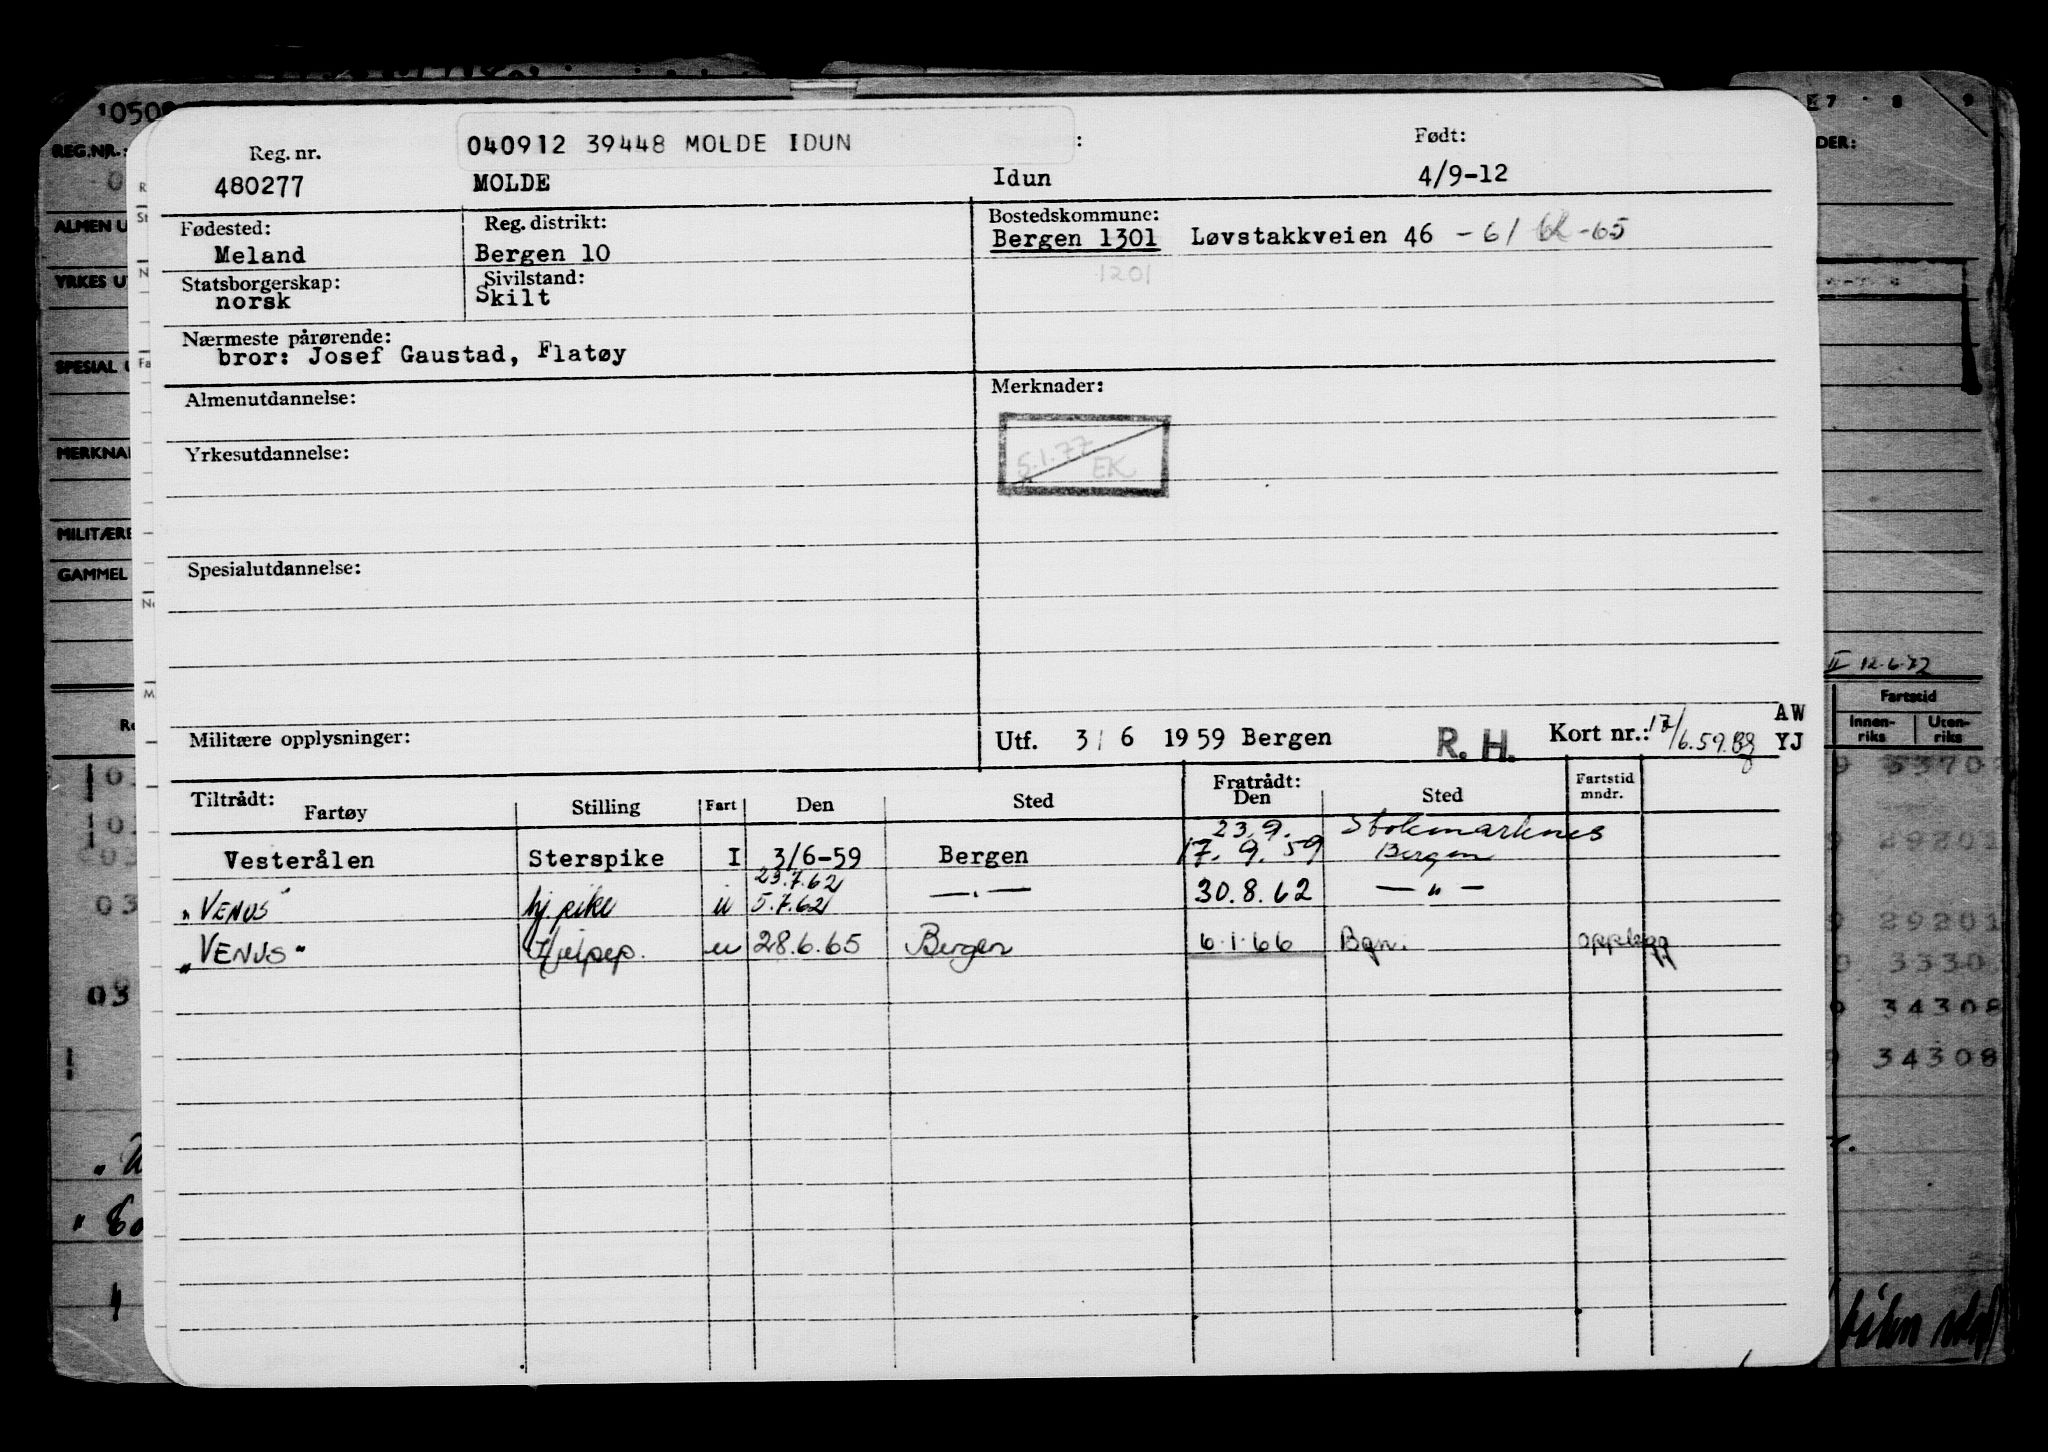 10500
E 7 8 9
REG.NR.:
040912 39448 MOLDE IDUN :
Født:
Reg. nr.
480277 MOLDE Idun 4/9-12
Fødested: Reg. distrikt: Bostedskommune:
Meland Bergen 10 Bergen 1301 Løvstakkveien 46 - 61 62 - 65
1201
Statsborgerskap: Sivilstand:
norsk Skilt
Nærmeste pårørende:
bror: Josef Gaustad, Flatøy
Almenutdannelse: Merknader:
5.1.77
EK
Yrkesutdannelse:
Spesialutdannelse:
Militære opplysninger: Utf. 3/6 1959 Bergen R. H. Kort nr.: 17/6.59. AW
YJ
Tiltrådt: Fratrådt:
Fartøy Stilling Fart Den Sted Den Sted Fartstid mndr.
23.9. Stokmarknes
Vesterålen Sterspike I 3/6-59 Bergen 17. 9. 59 Bergen
23.7.62
"VENUS" hj. pike u 5.7.62 — " — 30.8.62 — " —
"VENUS" Hjelpep. u 28.6.65 Bergen 6.1.66 Bgn. opplegg
ALMEN U
YRKES UT
SPESIAL U
MERKNA
MILITÆRE
GAMMEL
DER:
II 12.6.72
Fartstid
Innenriks Utenriks
53702
29201
29201
3330
34308
34308
03
03